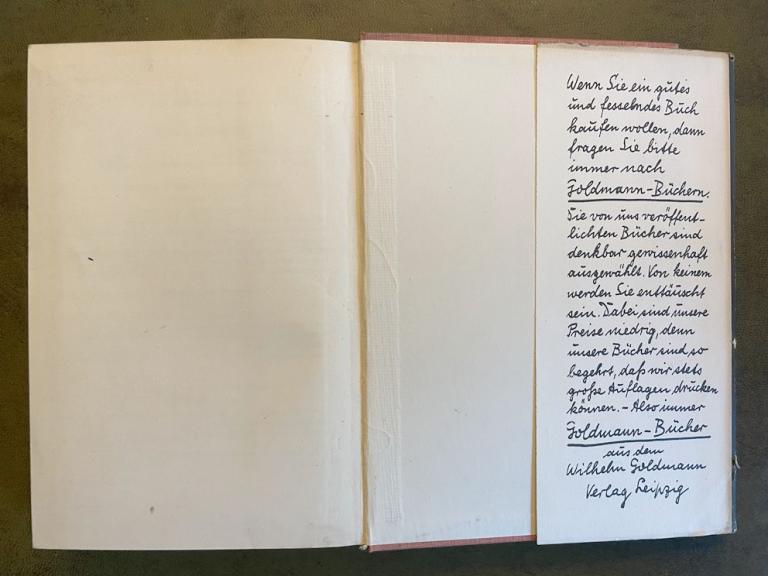 Wenn Sie ein gutes
und fesselndes Buch
kaufen wollen, dann
fragen Sie bitte
immer nach
Goldmann-Büchern.
Die von uns veröffent-
lichten Bücher sind
denkbar gewissenhaft
ausgewählt. Von keinem
werden Sie enttäuscht
sein. Dabei sind unsere
Preise niedrig, denn
unsere Bücher sind so
begehrt, daß wir stets
große Auflagen drucken
können. – Also immer
Goldmann-Bücher
aus dem
Wilhelm Goldmann
Verlag Leipzig